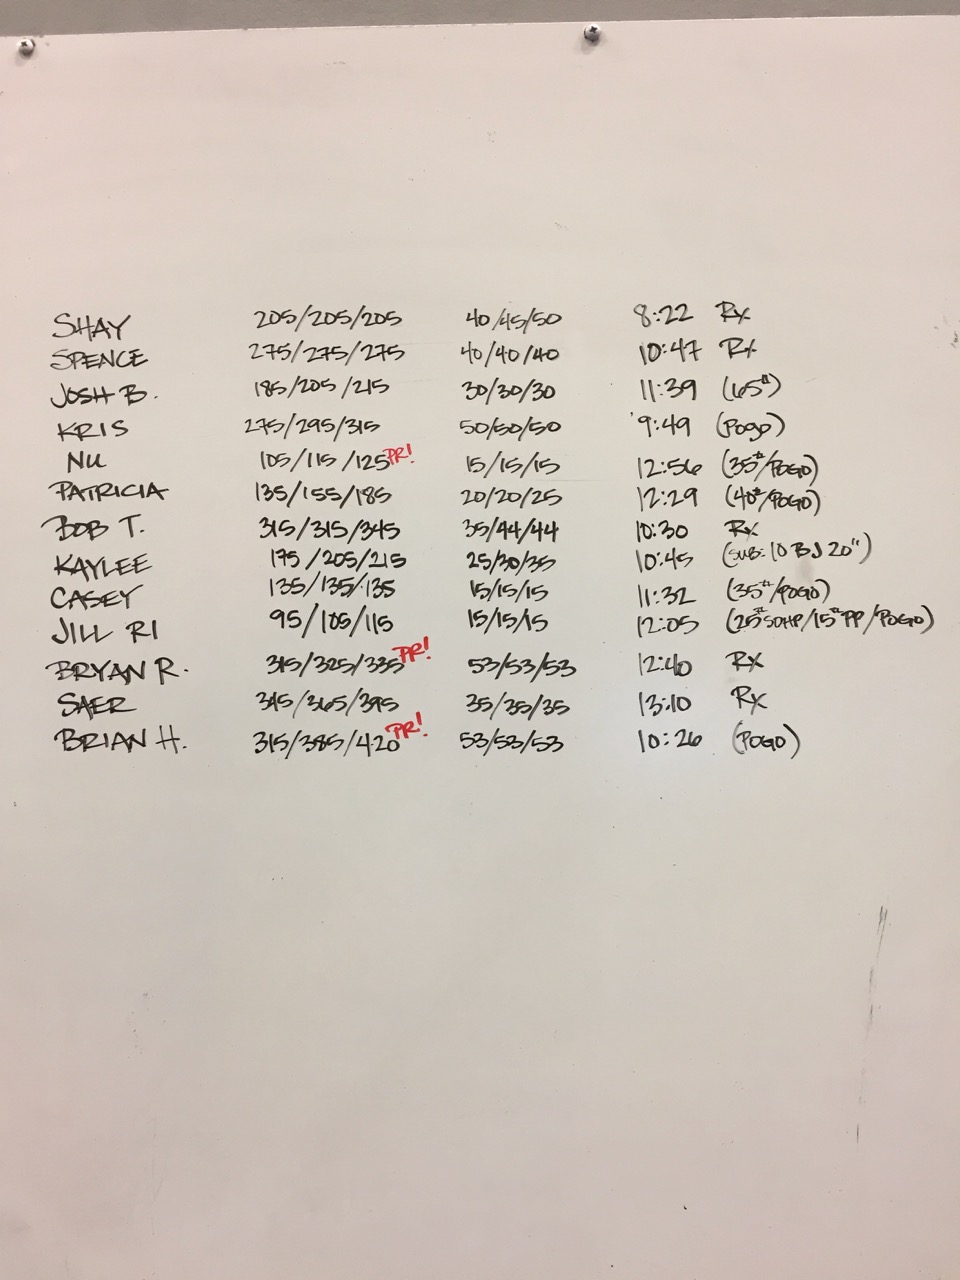 SHAY 205/205/205 40/45/50 8:22 Rx
SPENCE 275/275/275 40/40/40 10:47 Rx
JOSH B. 185/205/215 30/30/30 11:39 (65#)
KRIS 275/295/315 50/50/50 9:49 (POGO)
NU 105/115/125 PR! 15/15/15 12:56 (35#/POGO)
PATRICIA 135/155/185 20/20/25 12:29 (40#/POGO)
BOB T. 315/315/345 35/44/44 10:30 Rx
KAYLEE 175/205/215 25/30/35 10:45 (SUB: 10 BJ 20")
CASEY 135/135/135 15/15/15 11:32 (35#/POGO)
JILL RI 95/105/115 15/15/15 12:05 (25# SDHP/15# PP/POGO)
BRYAN R. 315/325/335 PR! 53/53/53 12:40 Rx
SAER 345/365/395 35/35/35 13:10 Rx
BRIAN H. 315/385/420 PR! 53/53/53 10:26 (POGO)